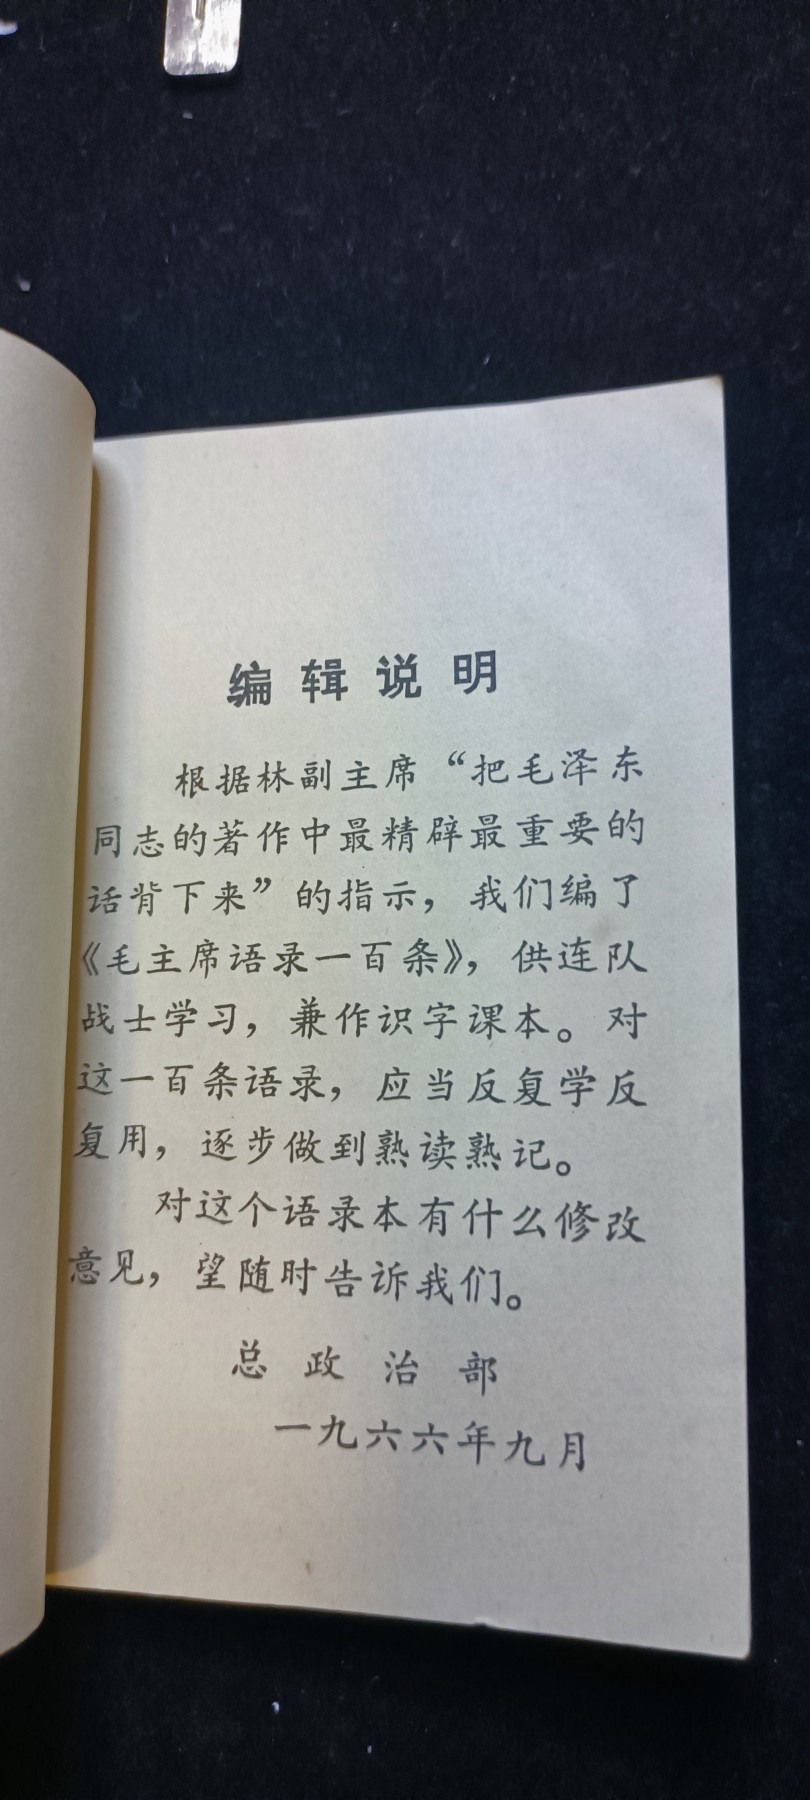 编辑说明
根据林副主席“把毛泽东
同志的著作中最精辟最重要的
话背下来”的指示，我们编了
《毛主席语录一百条》，供连队
战士学习，兼作识字课本。对
这一百条语录，应当反复学反
复用，逐步做到熟读熟记。
对这个语录本有什么修改
意见，望随时告诉我们。
总政治部
一九六六年九月